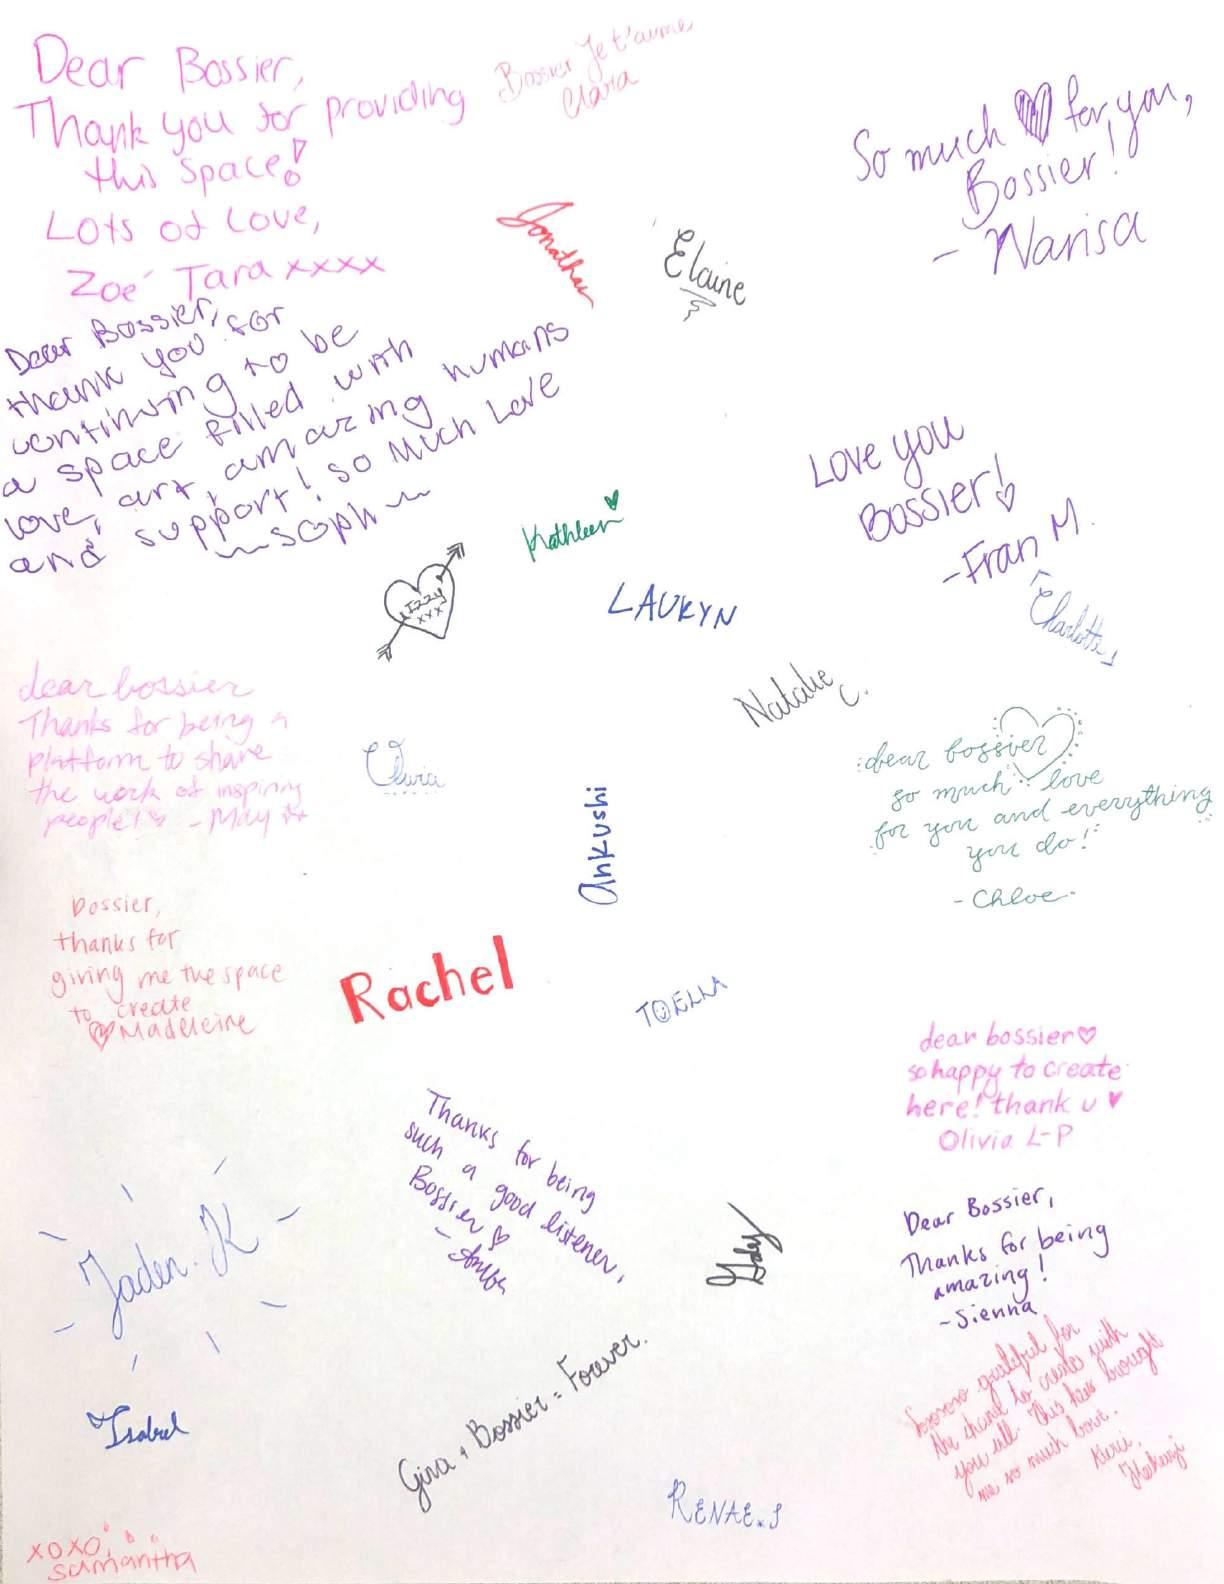 Dear Bossier,
Thank you for providing
this space!
Lots of Love,
Zoé Tara xxxx
Bossier Je t'aime
Clara
So much for you,
Bossier!
- Narisa
Jonathan
Elaine
Dear Bossier,
thank you for
continuing to be
a space filled with
love, art amazing humans
and support! so Much Love
soph
Love you
Bossier!
- Fran M.
Kathleen
Izzy
xxx
LAURYN
Charlotte
Natalie C.
dear bossier
Thanks for being a
platform to share
the work of inspiring
people! - May
Olivia
Ankushi
dear bossier
so much love
for you and everything
you do!
- Chloe
Bossier,
thanks for
giving me the space
to create
Madeleine
Rachel
TOELLA
dear bossier
so happy to create
here! thank u
Olivia L-P
Thanks for being
such a good listener,
Bossier
- Amber
Jaden.K
Dear Bossier,
Thanks for being
amazing!
- Sienna
Sooooo grateful for
the chance to create with
you all. This has brought
me so much love.
Merci,
Gina + Bossier = Forever.
Isabel
RENAE.S
XOXO,
Samantha